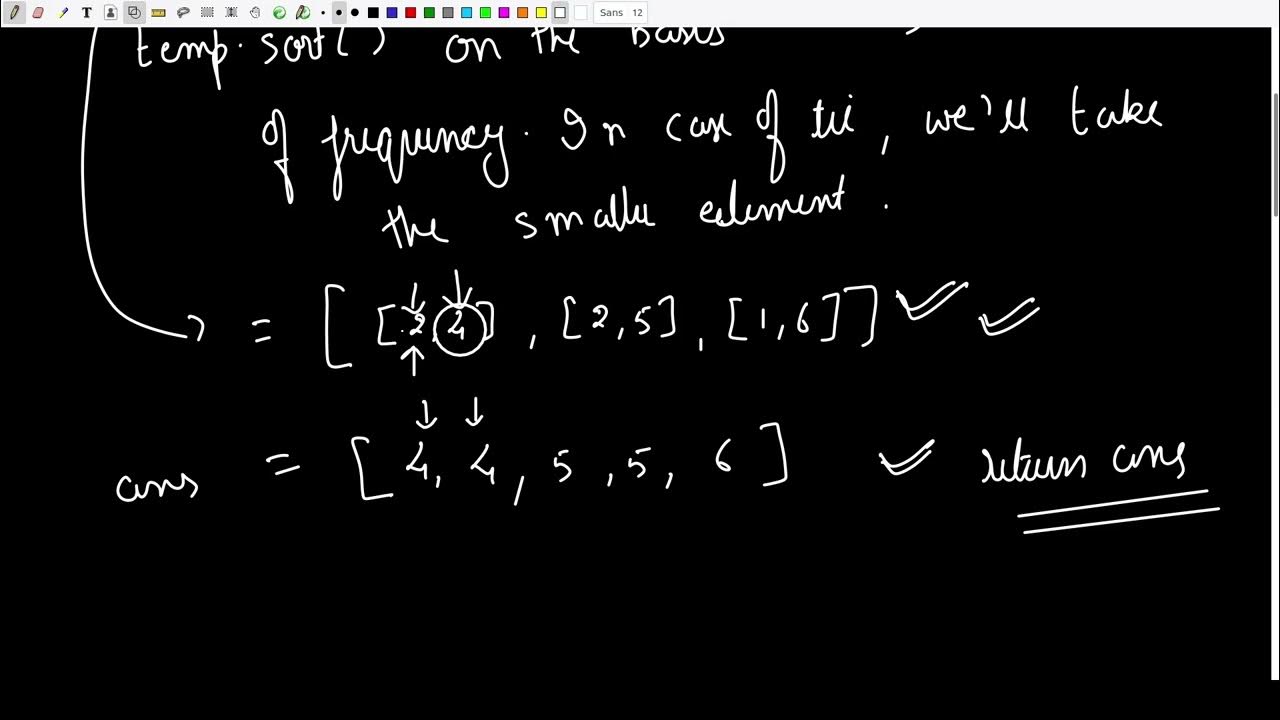 T Sans 12
temp.sort() on the basis
of frequency. In case of tie, we'll take
the smaller element.
= [ [2, 4], [2, 5], [1, 6] ]
ans = [ 4, 4, 5, 5, 6 ] return ans